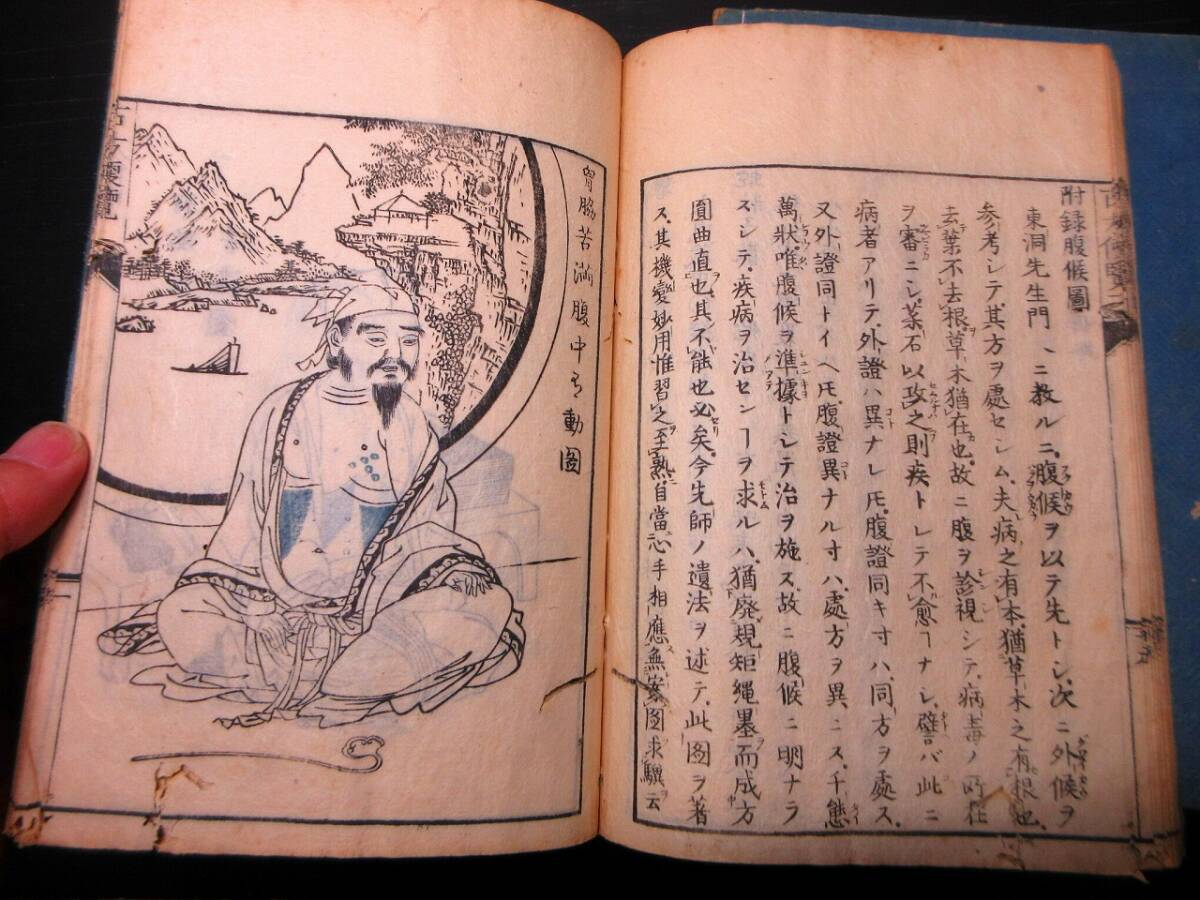 附録腹候圖
東洞先生門人ニ教ルニ、腹候ヲ以テ先トシ、次ニ外候ヲ
参考シテ其方ヲ處セシム、夫病之有本、猶草木之有根也、
去葉不去根、草木猶在也、故ニ腹ヲ診視シテ、病毒ノ所在
ヲ審ニシ、薬石以攻之、則疾トシテ不愈ヿナシ、譬バ此ニ
病者アリテ、外證ハ異ナレ𪜈、腹證同キ寸ハ、同方ヲ處ス、
又外證同トイヘ𪜈、腹證異ナル寸ハ、處方ヲ異ニス、千態
萬狀、唯腹候ヲ準據トシテ治ヲ施ス、故ニ腹候ニ明ナラ
ズシテ、疾病ヲ治センヿヲ求ルハ、猶廃規矩繩墨而成方
圓曲直也、其不能也必矣、今先師ノ遺法ヲ述テ、此图ヲ著
ス、其機變妙用、惟習之至熟、自當心手相應、無案图求驥云
胷脇苦満腹中有動圖
古方要覧